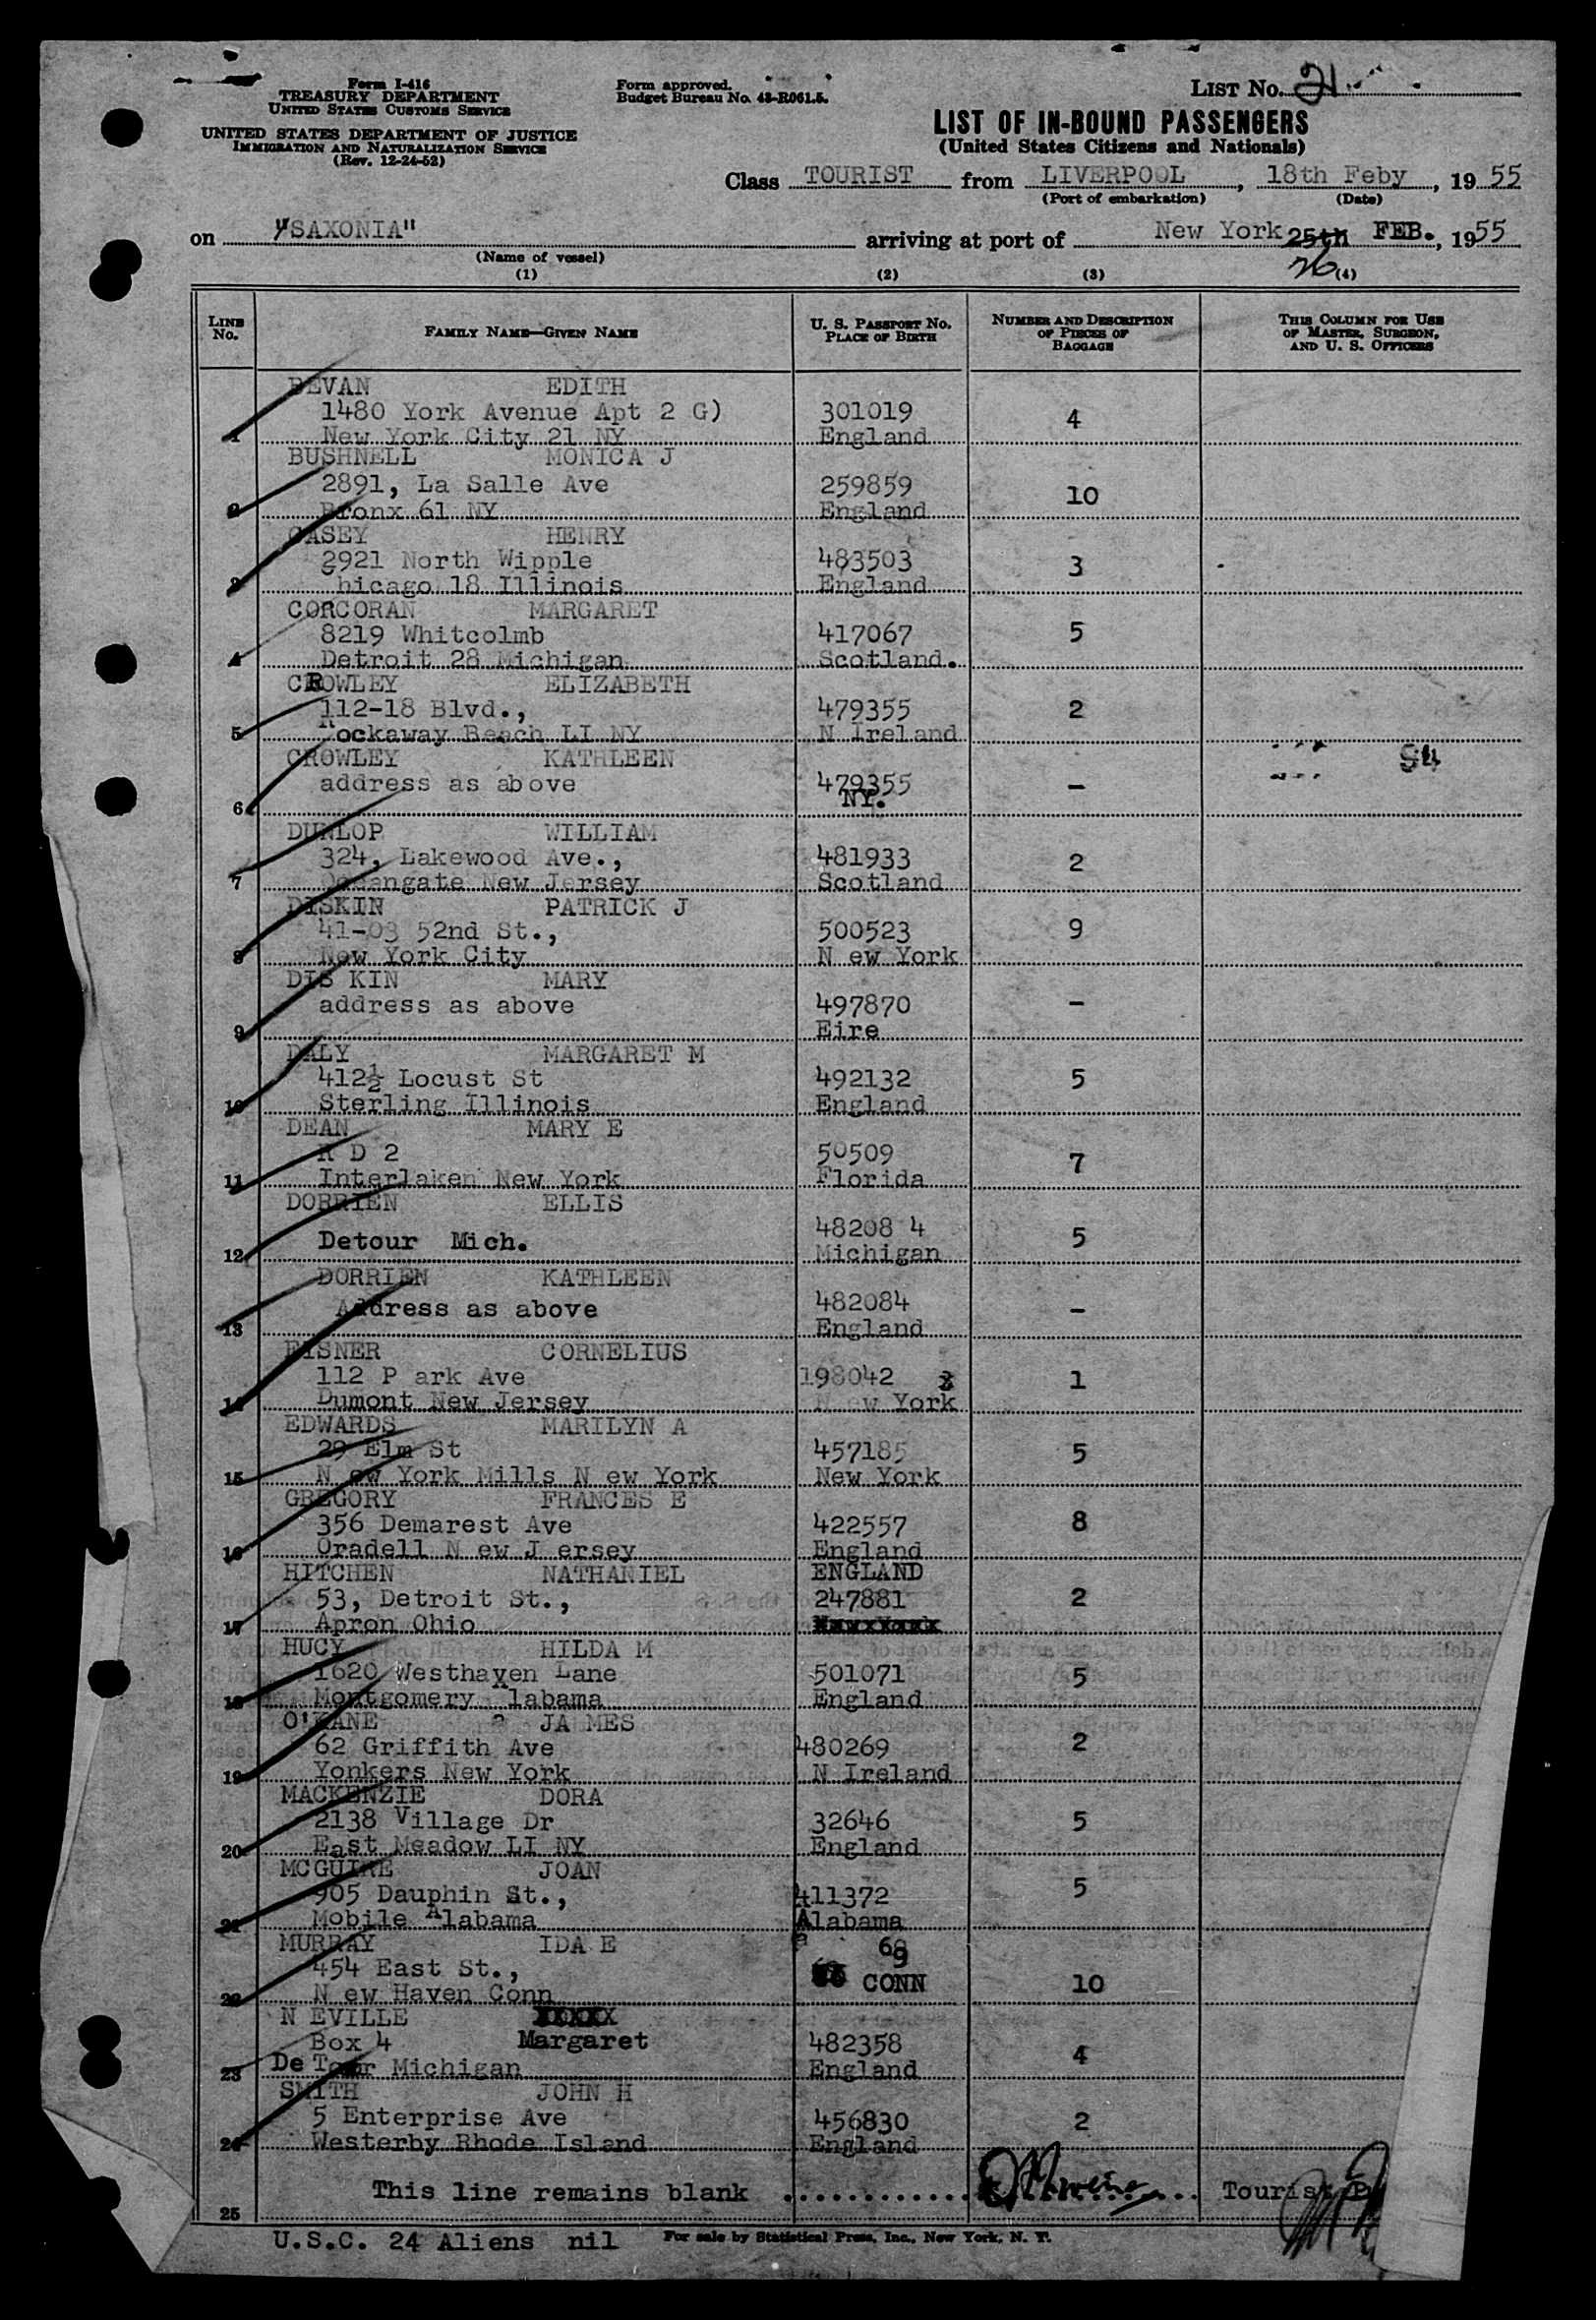 Form I-416
TREASURY DEPARTMENT
UNITED STATES CUSTOMS SERVICE
UNITED STATES DEPARTMENT OF JUSTICE
IMMIGRATION AND NATURALIZATION SERVICE
(Rev. 12-24-52)
Form approved.
Budget Bureau No. 43-R061.5.
LIST No. 21
LIST OF IN-BOUND PASSENGERS
(United States Citizens and Nationals)
Class TOURIST from LIVERPOOL, 18th Feby, 1955
(Port of embarkation) (Date)
on "SAXONIA" arriving at port of New York 25th FEB., 1955
26
(Name of vessel)
(1) (2) (3) (4)
LINE No. FAMILY NAME—GIVEN NAME U. S. PASSPORT No. PLACE OF BIRTH NUMBER AND DESCRIPTION OF PIECES OF BAGGAGE THIS COLUMN FOR USE OF MASTER, SURGEON, AND U. S. OFFICERS
BEVAN EDITH
1480 York Avenue Apt 2 G) 301019 4
1 New York City 21 NY England
BUSHNELL MONICA J
2891, La Salle Ave 259859 10
2 Bronx 61 NY England
CASEY HENRY
2921 North Wipple 483503 3
3 Chicago 18 Illinois England
CORCORAN MARGARET
8219 Whitcolmb 417067 5
4 Detroit 28 Michigan Scotland.
CROWLEY ELIZABETH
112-18 Blvd., 479355 2
5 Rockaway Beach LI NY N Ireland
CROWLEY KATHLEEN
address as above 479355 –
6 NY.
DUNLOP WILLIAM
324, Lakewood Ave., 481933 2
7 Oceangate New Jersey Scotland
DISKIN PATRICK J
41-03 52nd St., 500523 9
8 New York City N ew York
DIS KIN MARY
address as above 497870 –
9 Eire
DALY MARGARET M
412½ Locust St 492132 5
10 Sterling Illinois England
DEAN MARY E
R D 2 50509 7
11 Interlaken New York Florida
DORRIEN ELLIS
48208 4
12 Detour Mich. Michigan 5
DORRIEN KATHLEEN
Address as above 482084 –
13 England
EISNER CORNELIUS
112 P ark Ave 198042 3 1
14 Dumont New Jersey N ew York
EDWARDS MARILYN A
29 Elm St 457185 5
15 N ew York Mills N ew York New York
GREGORY FRANCES E
356 Demarest Ave 422557 8
16 Oradell N ew J ersey England
HITCHEN NATHANIEL ENGLAND
53, Detroit St., 247881 2
17 Apron Ohio
HUCY HILDA M
1620 Westhaven Lane 501071 5
18 Montgomery Alabama England
O'KANE JA MES
62 Griffith Ave 480269 2
19 Yonkers New York N Ireland
MACKENZIE DORA
2138 Village Dr 32646 5
20 East Meadow LI NY England
MCGUIRE JOAN
905 Dauphin St., 411372 5
21 Mobile Alabama Alabama
MURRAY IDA E
454 East St.,
22 N ew Haven Conn CONN 10
N EVILLE
Box 4 Margaret 482358
23 De Tour Michigan England 4
SMITH JOHN H
5 Enterprise Ave 456830 2
24 Westerby Rhode Island England
25 This line remains blank Tourist
U.S.C. 24 Aliens nil For sale by Statistical Press, Inc., New York, N. Y.